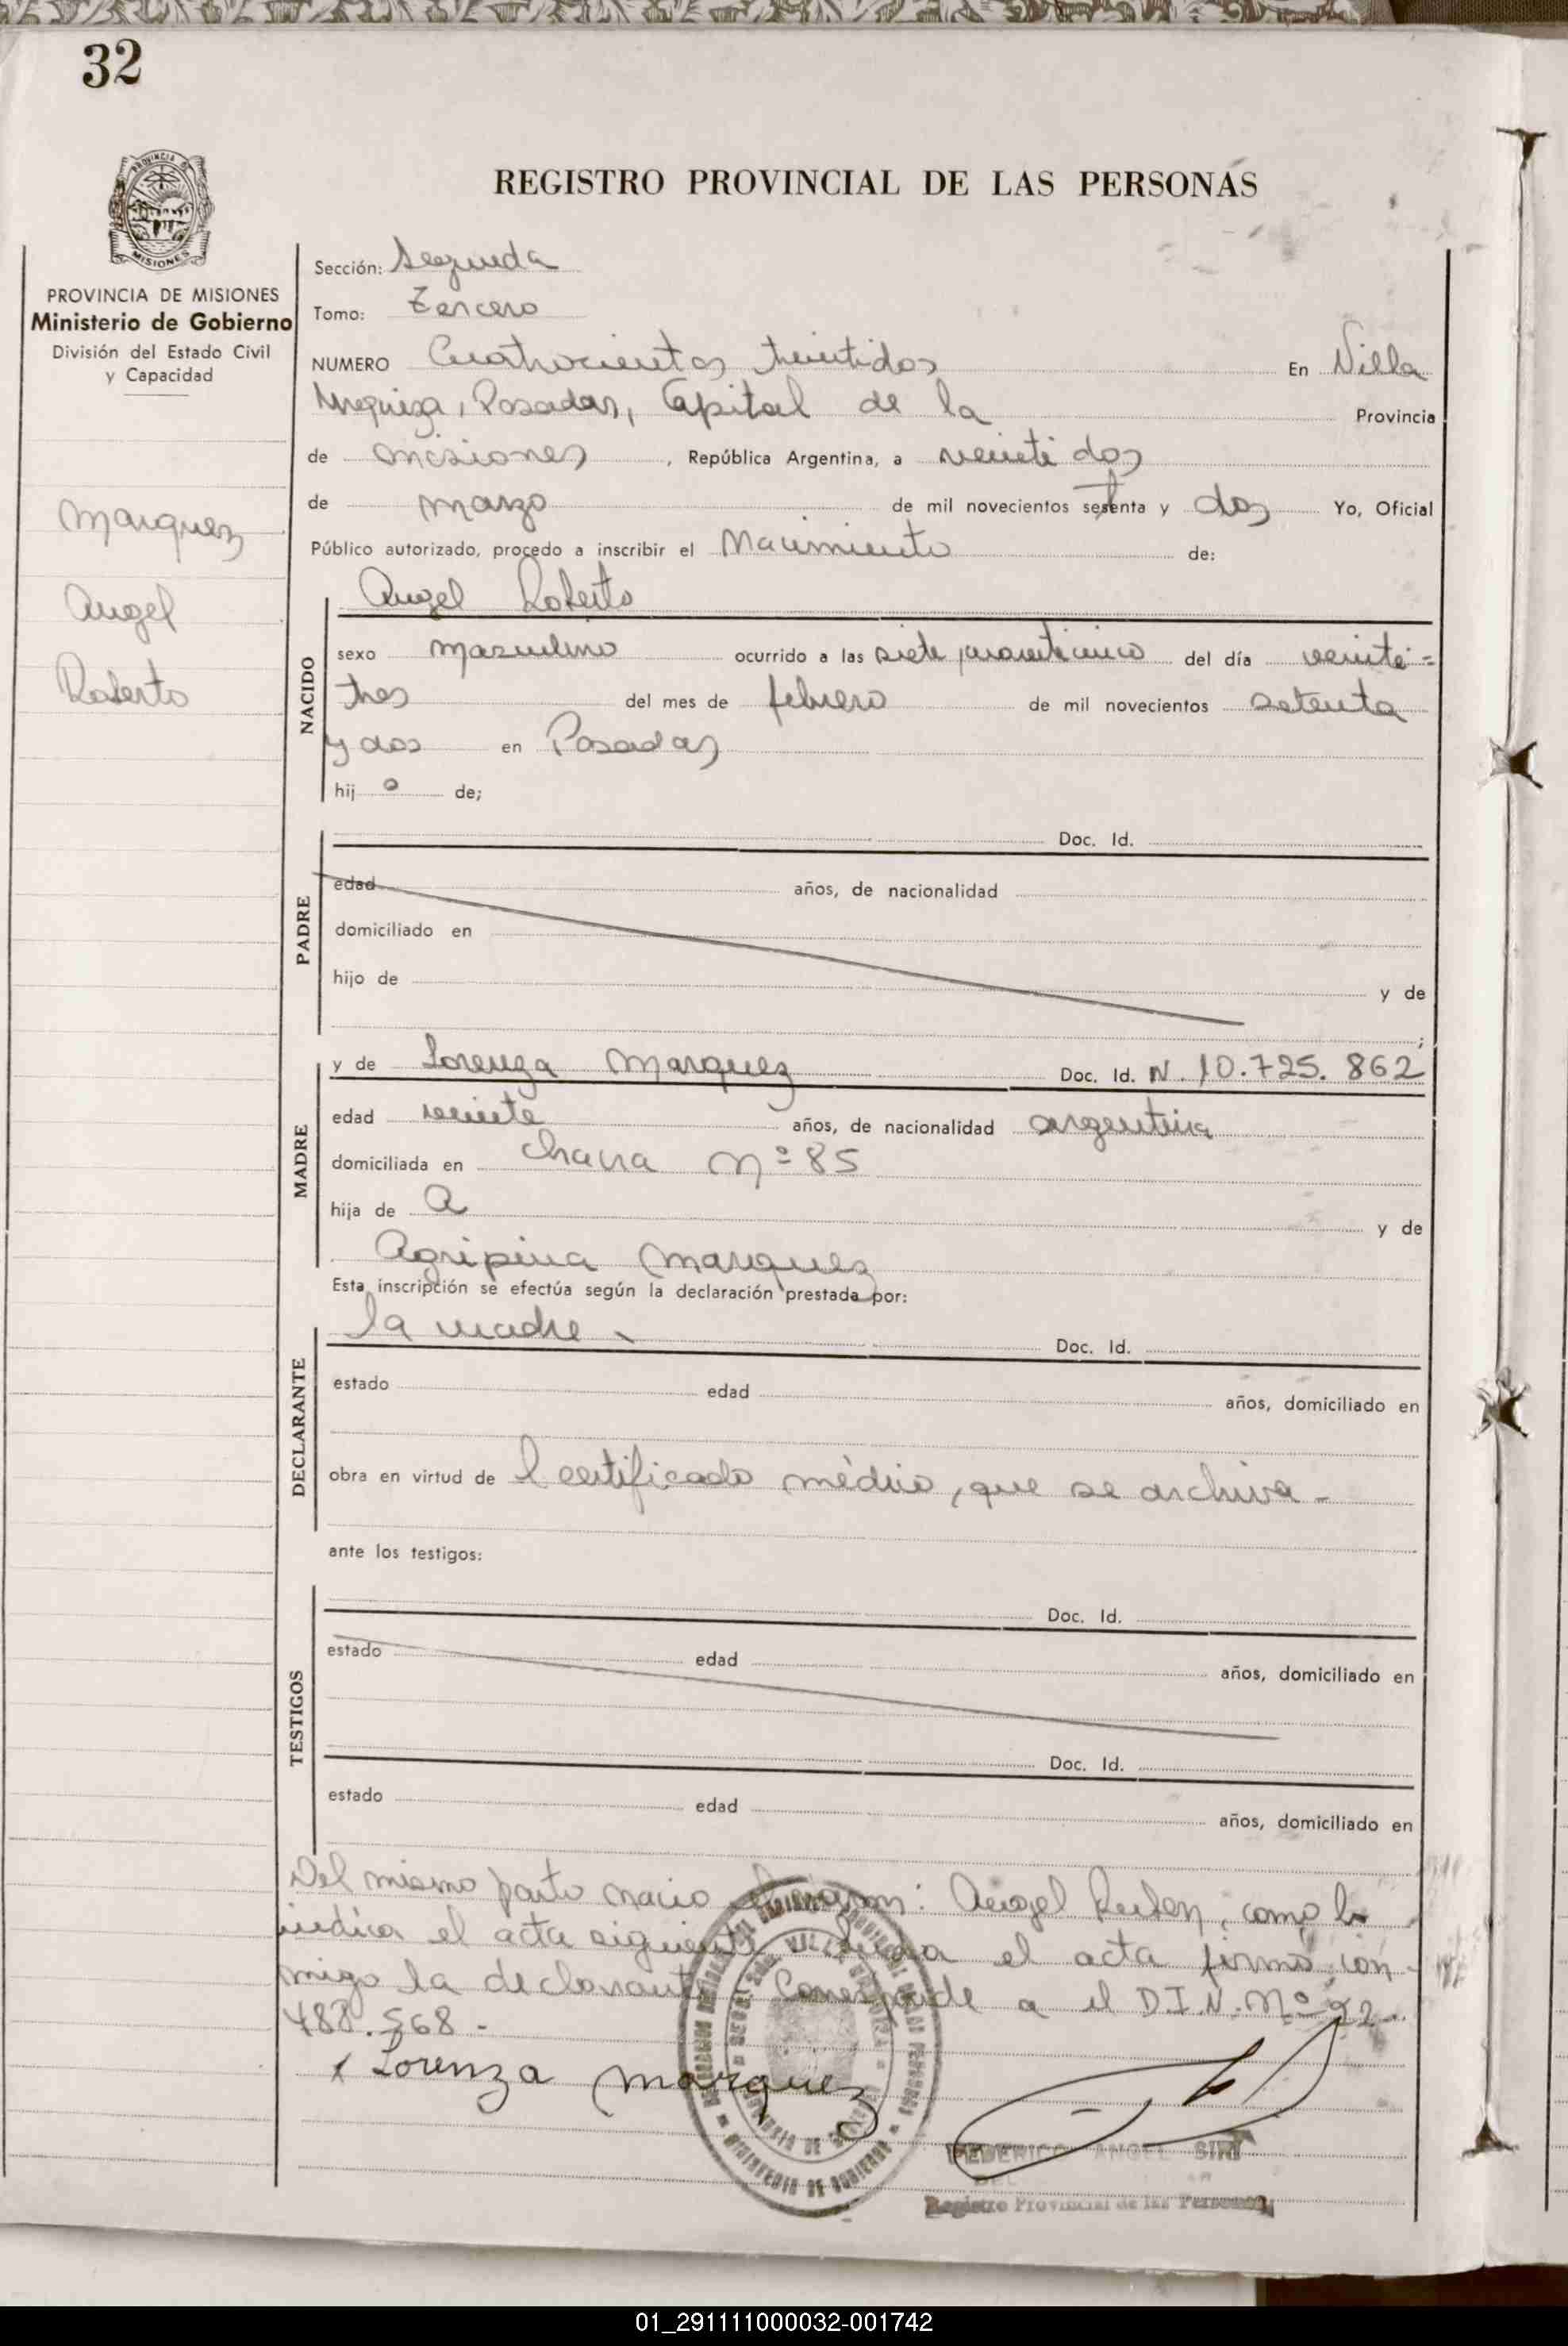 32
PROVINCIA DE
MISIONES
REGISTRO PROVINCIAL DE LAS PERSONAS
PROVINCIA DE MISIONES
Ministerio de Gobierno
División del Estado Civil
y Capacidad
Marquez
Angel
Roberto
Sección: Segunda
Tomo: Tercero
NUMERO Cuatrocientos treintidos En Villa
Urquiza, Posadas, Capital de la Provincia
de Misiones, República Argentina, a veinti dos
de marzo de mil novecientos setenta y dos Yo, Oficial
Público autorizado, procedo a inscribir el Nacimiento de:
NACIDO
Angel Roberto
sexo masculino ocurrido a las siete cuarenticinco del día veinti=
tres del mes de febrero de mil novecientos setenta
y dos en Posadas
hijo de;
PADRE
Doc. Id.
edad años, de nacionalidad
domiciliado en
hijo de y de
;
MADRE
y de Lorenza Marquez Doc. Id. N. 10.725.862
edad veinte años, de nacionalidad argentina
domiciliada en Chacra Nº 85
hija de a y de
Agripina Marquez
Esta inscripción se efectúa según la declaración prestada por:
DECLARANTE
la madre - Doc. Id.
estado edad años, domiciliado en
obra en virtud de l certificado médico, que se archiva -
ante los testigos:
TESTIGOS
Doc. Id.
estado edad años, domiciliado en
Doc. Id.
estado edad años, domiciliado en
Del mismo parto nacio el varon: Angel Ruben, como lo
indica el acta siguiente. el acta firmó con
migo la declarante. Corresponde a el D.I.N. Nº 22.
488.568 -
x Lorenza Marquez
FEDERICO ANGEL SIRI
Registro Provincial de las Personas
01_291111000032-001742